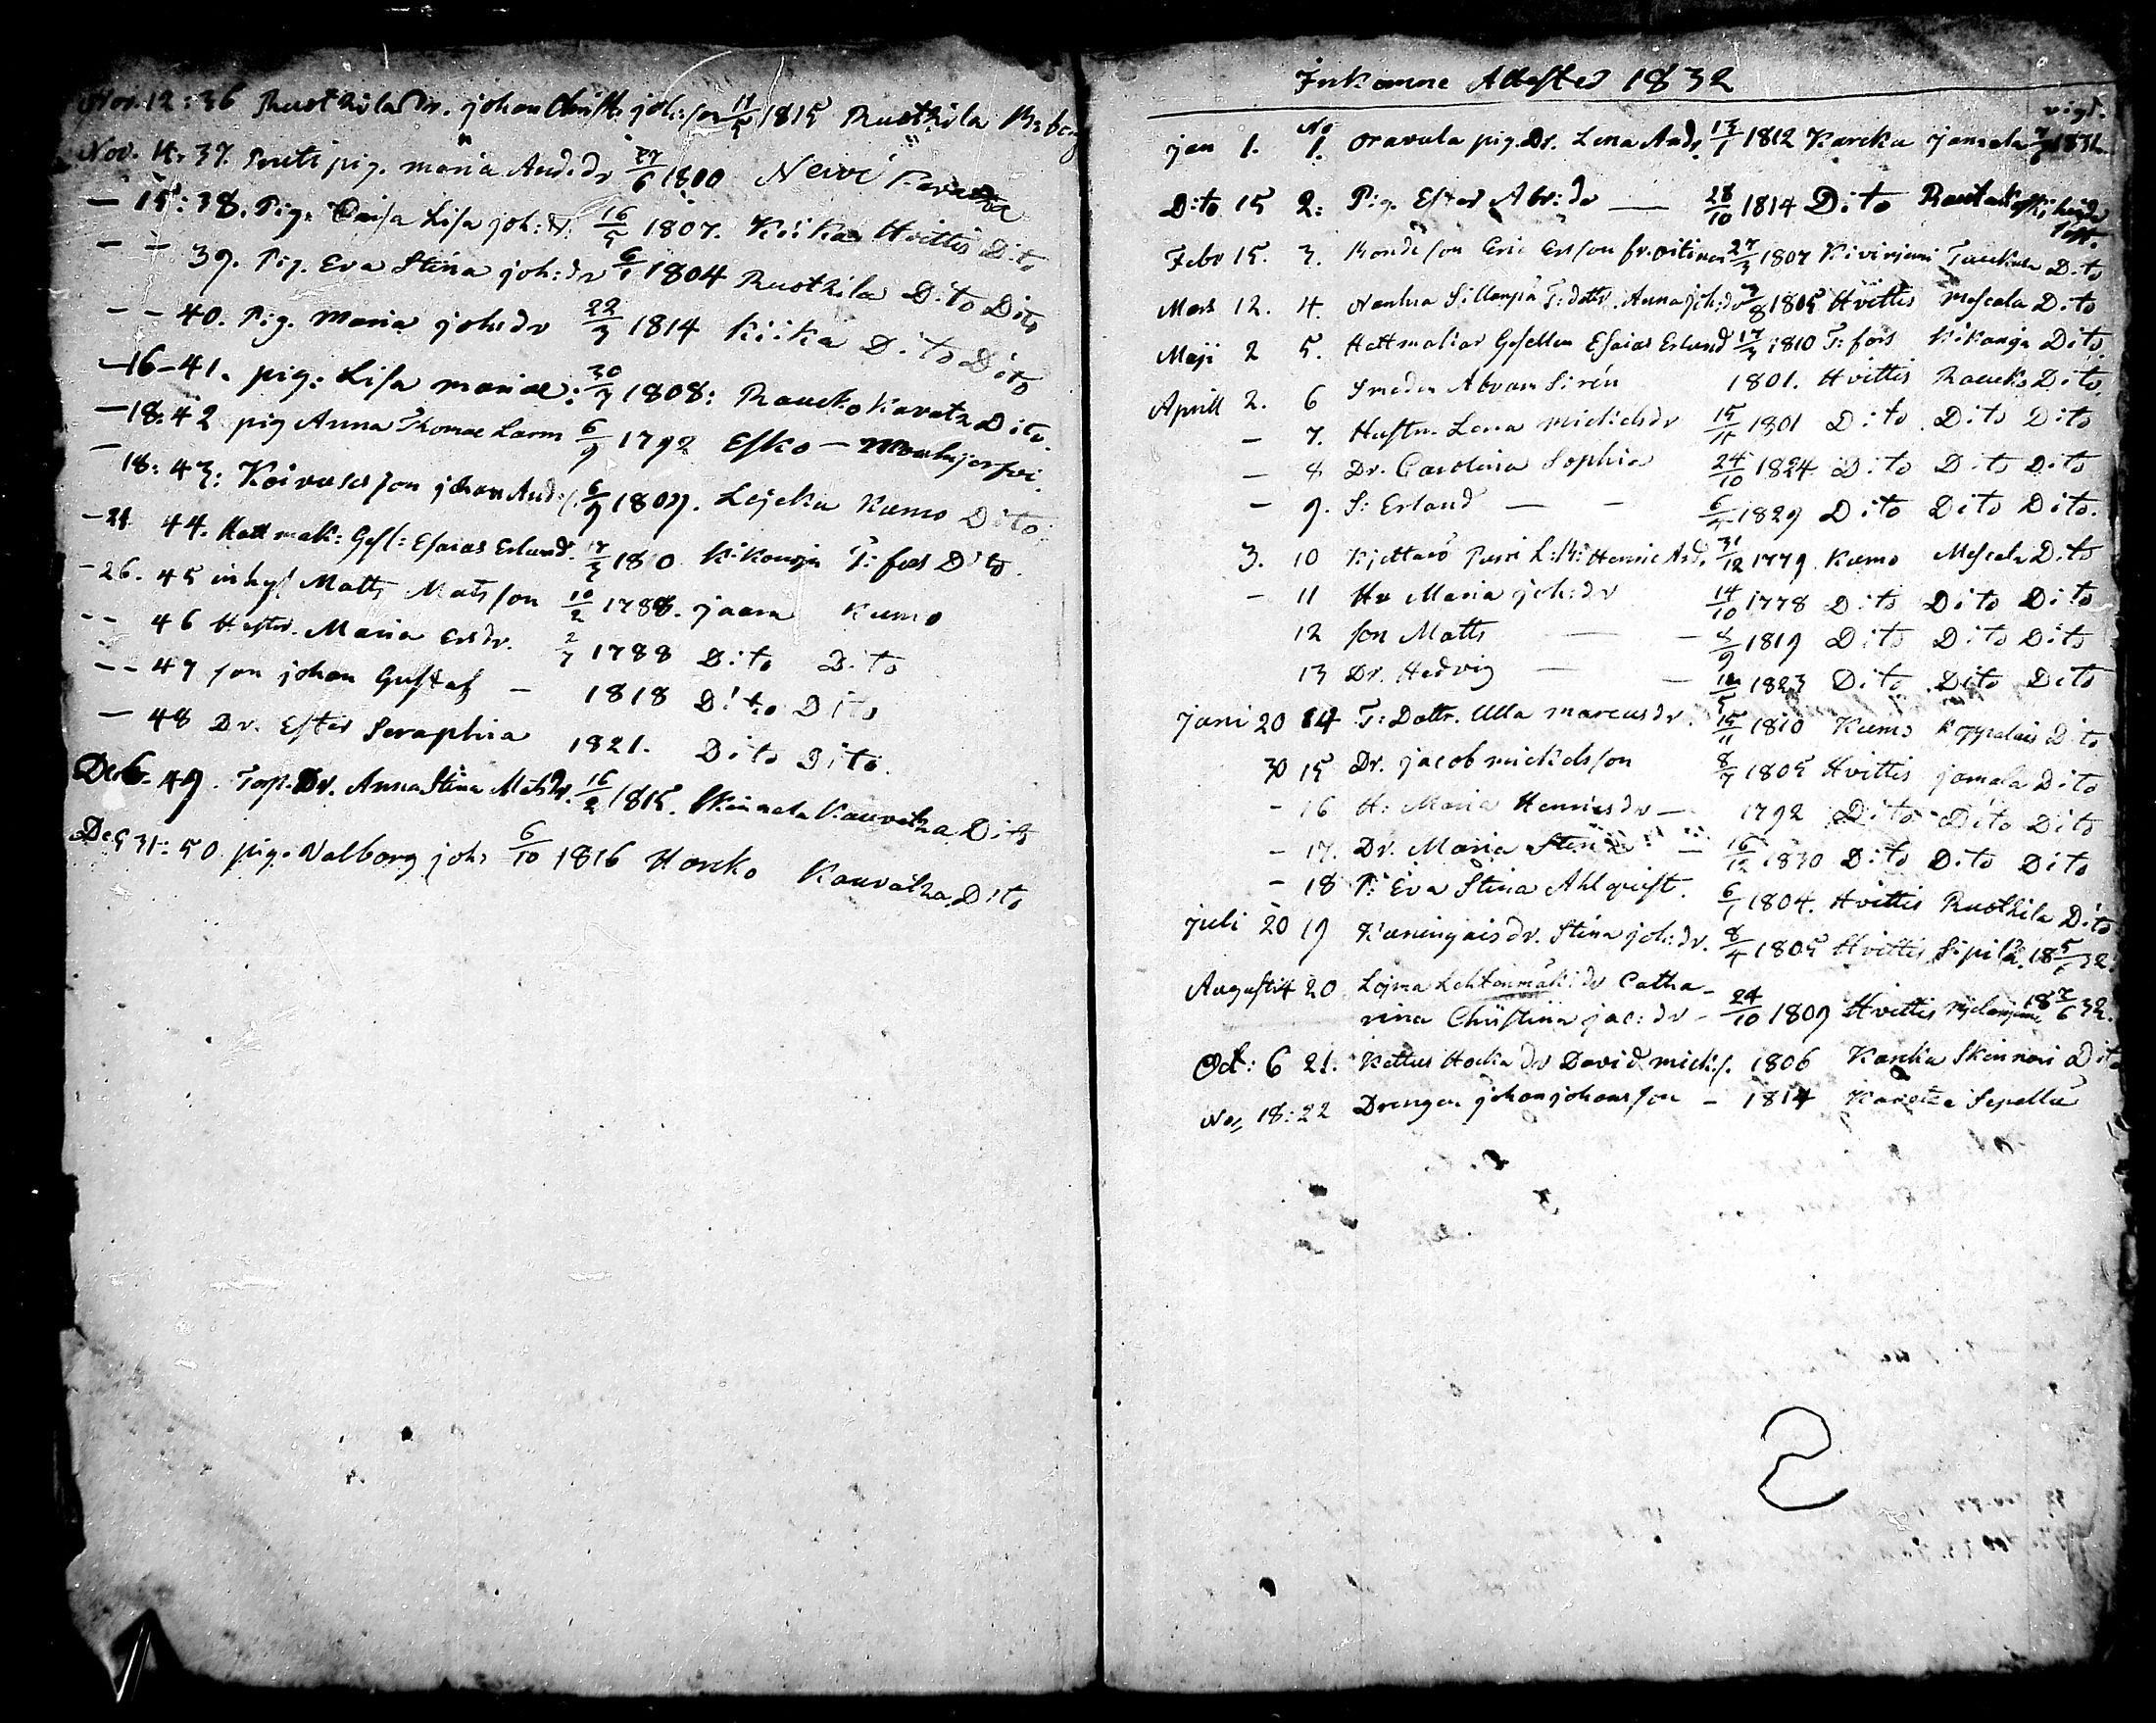 Nov. 12: 36 Ruokila dr. johan Christ. joh:son 11/5 1815 Ruokila
Nov. 14: 37. Pentti pig. maria And:dr 27/6 1800 Neivi
— 15: 38. Pig. Caisa Lisa joh:dr. 16/5 1807. Kiika Hvittis Dito
— — 39. Pig. Eva Stina joh:dr 6/1 1804 Ruokila Dito Dito
— — 40. Pig. Maria joh:dr 22/3 1814 Kiika Dito Dito
— 16 — 41. pig: Lisa mariae: 30/3 1808: Raucko Karvatz Dito.
— 18. 42 pig Anna Thomae Larm 6/9 1792 Esko —
— 18: 43: son johan And: 6/9 1809. Lejcku Kumo Dito
— 21 44. Hattmak: Gesl: Esaias Erlund. 17/3 1810 Kikonja T:fors Dito.
— 26. 45 inhys Matts Mats son 10/2 1788. jaara Kumo
— — 46 Hustr. Maria Ersdr. 2/7 1788 Dito Dito
— — 47 son johan Gustaf — 1818 Dito Dito
— 48 Dr. Ester Seraphia 1821. Dito Dito.
Dec 6. 49. Torp. Dr. Anna Stina Matsdr. 16/2 1815. Skinnala Kauvatza Dito
Dec 31: 50 pig. Valborg joh: 6/10 1816 Horcko Kauvatza Dito
Inkomne Attester 1832
vigd.
jan 1. No 1. Oravala pig. Dr. Lena Andr. 13/1 1812 Karcku jamala 1832
Dito 15 2: Pig. Ester Abr:dr — 28/10 1814 Dito
Febr 15. 3. Bondeson Eric Ersson fr. 27/3 1807 Kivirjemi Dito
Mars 12. 4. Nanhia Sillanpää T:dottr. Anna joh:dr 3/8 1805 Hvittis Mescala Dito
Maji 2 5. Hattmakar Gesellen Esaias Erlund 17/3 1810 T:fors Kikonja Dito.
Aprill 2. 6 Smeden Abram Sirén 1801. Hvittis Raucko Dito.
— 7. Hustru Lena mickelsdr 15/11 1801 Dito Dito Dito
— 8 Dr. Carolina Sophia 24/10 1824 Dito Dito Dito
— 9. S: Erland — — 6/4 1829 Dito Dito Dito.
3. 10 Henric And. 31/12 1779 Kumo Mescala Dito
— 11 Hu Maria joh:dr 14/10 1778 Dito Dito Dito
12 son Matts — — 8/9 1819 Dito Dito Dito
13 Dr. Hedvig — — 1823 Dito Dito Dito
juni 20 14 T: Dottr. Ulla marcusdr. 15/11 1810 Kumo Dito
30 15 Dr. jacob mickelsson 8/7 1805 Hvittis jamala Dito
— 16 H: Maria Henricsdr — 1792 Dito Dito Dito
— 17. Dr. Maria Stina — 16/12 1830 Dito Dito Dito
— 18 P: Eva Stina Ahlqvist. 6/1 1804. Hvittis Ruokila Dito
juli 20 19 dr. Stina joh:dr. 8/4 1805 Hvittis Sipilä 32.
Augusti 4 20 Lojma Lehtonmäki dr Catha-
rina Christina jac:dr — 24/10 1809 Hvittis 18 7/6 32.
Oct: 6 21. Kettus Hocka dr David mick:s. 1806 Karcku Skinnari Dito
Nov 18: 22 Drengen johan johansson — 1814
2